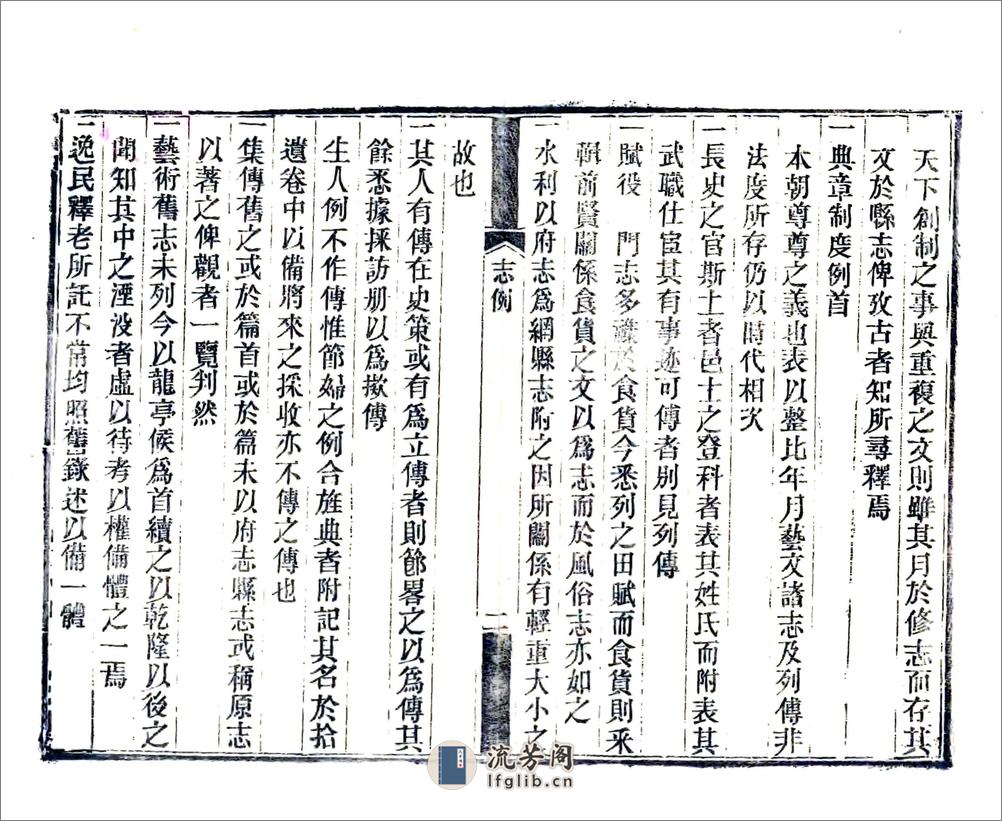 天下創制之事與重複之文則雖其月於修志而存其
文於縣志俾攷古者知所尋釋焉
一典章制度例首
本朝尊尊之義也表以整比年月藝文諸志及列傳非
法度所存仍以時代相次
一長史之官斯土者邑士之登科者表其姓氏而附表其
武職仕宦其有事迹可傳者別見列傳
一賦役 門志多雜於食貨今悉列之田賦而食貨則采
輯前賢關係食貨之文以為志而於風俗志亦如之
一水利以府志為綱縣志附之因所關係有輕重大小之
志例
二
故也
一其人有傳在史策或有為立傳者則節畧之以為傳其
餘悉據採訪册以為撳傳
生人例不作傳惟節婦之例合旌典者附記其名於拾
遺卷中以備將來之採收亦不傳之傳也
一集傳舊之或於篇首或於篇末以府志縣志或稱原志
以著之俾觀者一覽判然
一藝術舊志未列今以龍亭候為首續之以乾隆以後之
聞知其中之湮没者虛以待考以權備體之一焉
一逸民釋老所託不常均照舊錄述以備一體
流芳阁
lfglib.cn